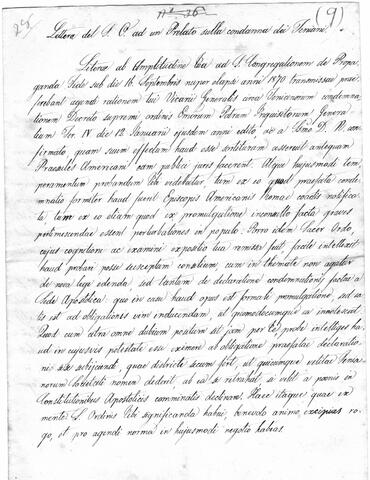 N.º 36
(9)
Lettera del S. O. ad un Prelato sulla condanna dei Feniani.
Literae ab Amplitudine tua ad S. Congregationem de Propa-
ganda Fide sub die 16. Septembris nuper elapsi anni 1870 transmissae prae
ferebant agendi rationem tui Vicarii Generalis circa Fenianorum condemna-
tionem Decreto supremi ordinis Emorum Patrum Inquisitorum Genera
lium Fer. IV die 12 Januarii ejusdem anni edito, ac a SSmo D. N. con-
firmato, quam suum effectum haud esse sortituram asserunt antequam
Praesules Americani eam publici juris facerent. Atque hujusmodi tem
peramentum probandum tibi videbatur, tum ex eo quod praefata conde
mnatio formiter haud fuerit Episcopis Americanis Romae coactis notifica
ta tum ex eo etiam quod ex promulgatione inconsulto facta graves
pertimescendae essent perturbationes in populo. Porro idem Sacer Ordo,
cujus cognitioni ac examini expositio tua remissa fuit, facile intellexit
haud probari posse susceptum consilium, cum in themate non agatur
de nova lege edenda, sed tantum de declaratione condemnationis factae a
Sede Apostolica: quo in casu haud opus est formali promulgatione, sed sa-
tis est ad obligationis vim inducendam, ut quomodocumque ea innotescat.
Quod cum citra omne dubium positum sit jam per te, probe intelliges ha-
ud in cujusvis potestate esse eximere ab obligatione praefatae declaratio-
nis se se abjiciendi, quae districte secum fert, ut quicumque vetitae Fenia-
norum societati nomen dedit, ab ea se retrahat, si velit a poenis in
Constitutionibus Apostolicis comminatis declinare. Haec itaque quae ex
mente S. Ordinis tibi significanda habui, benevolo animo, excipias ro-
go, et pro agendi norma in hujusmodi negotio habeas.